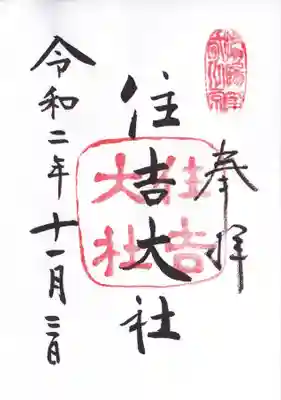 奉拝
住吉大社
住吉
大社
令和二年十一月三日